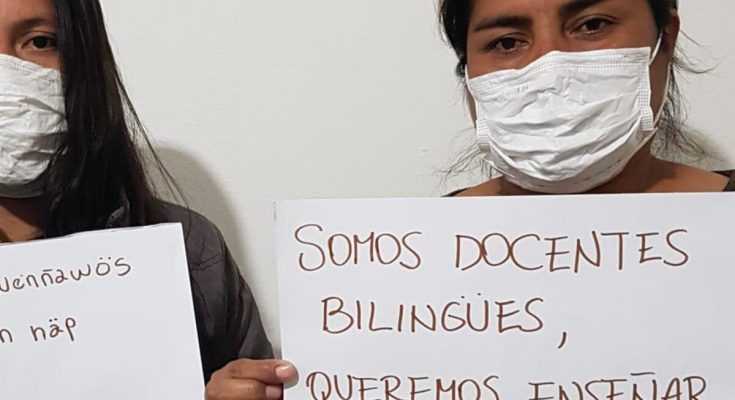 uénñawös
n näp
SOMOS DOCENTES
BILINGÜES,
QUEREMOS ENSEÑAR